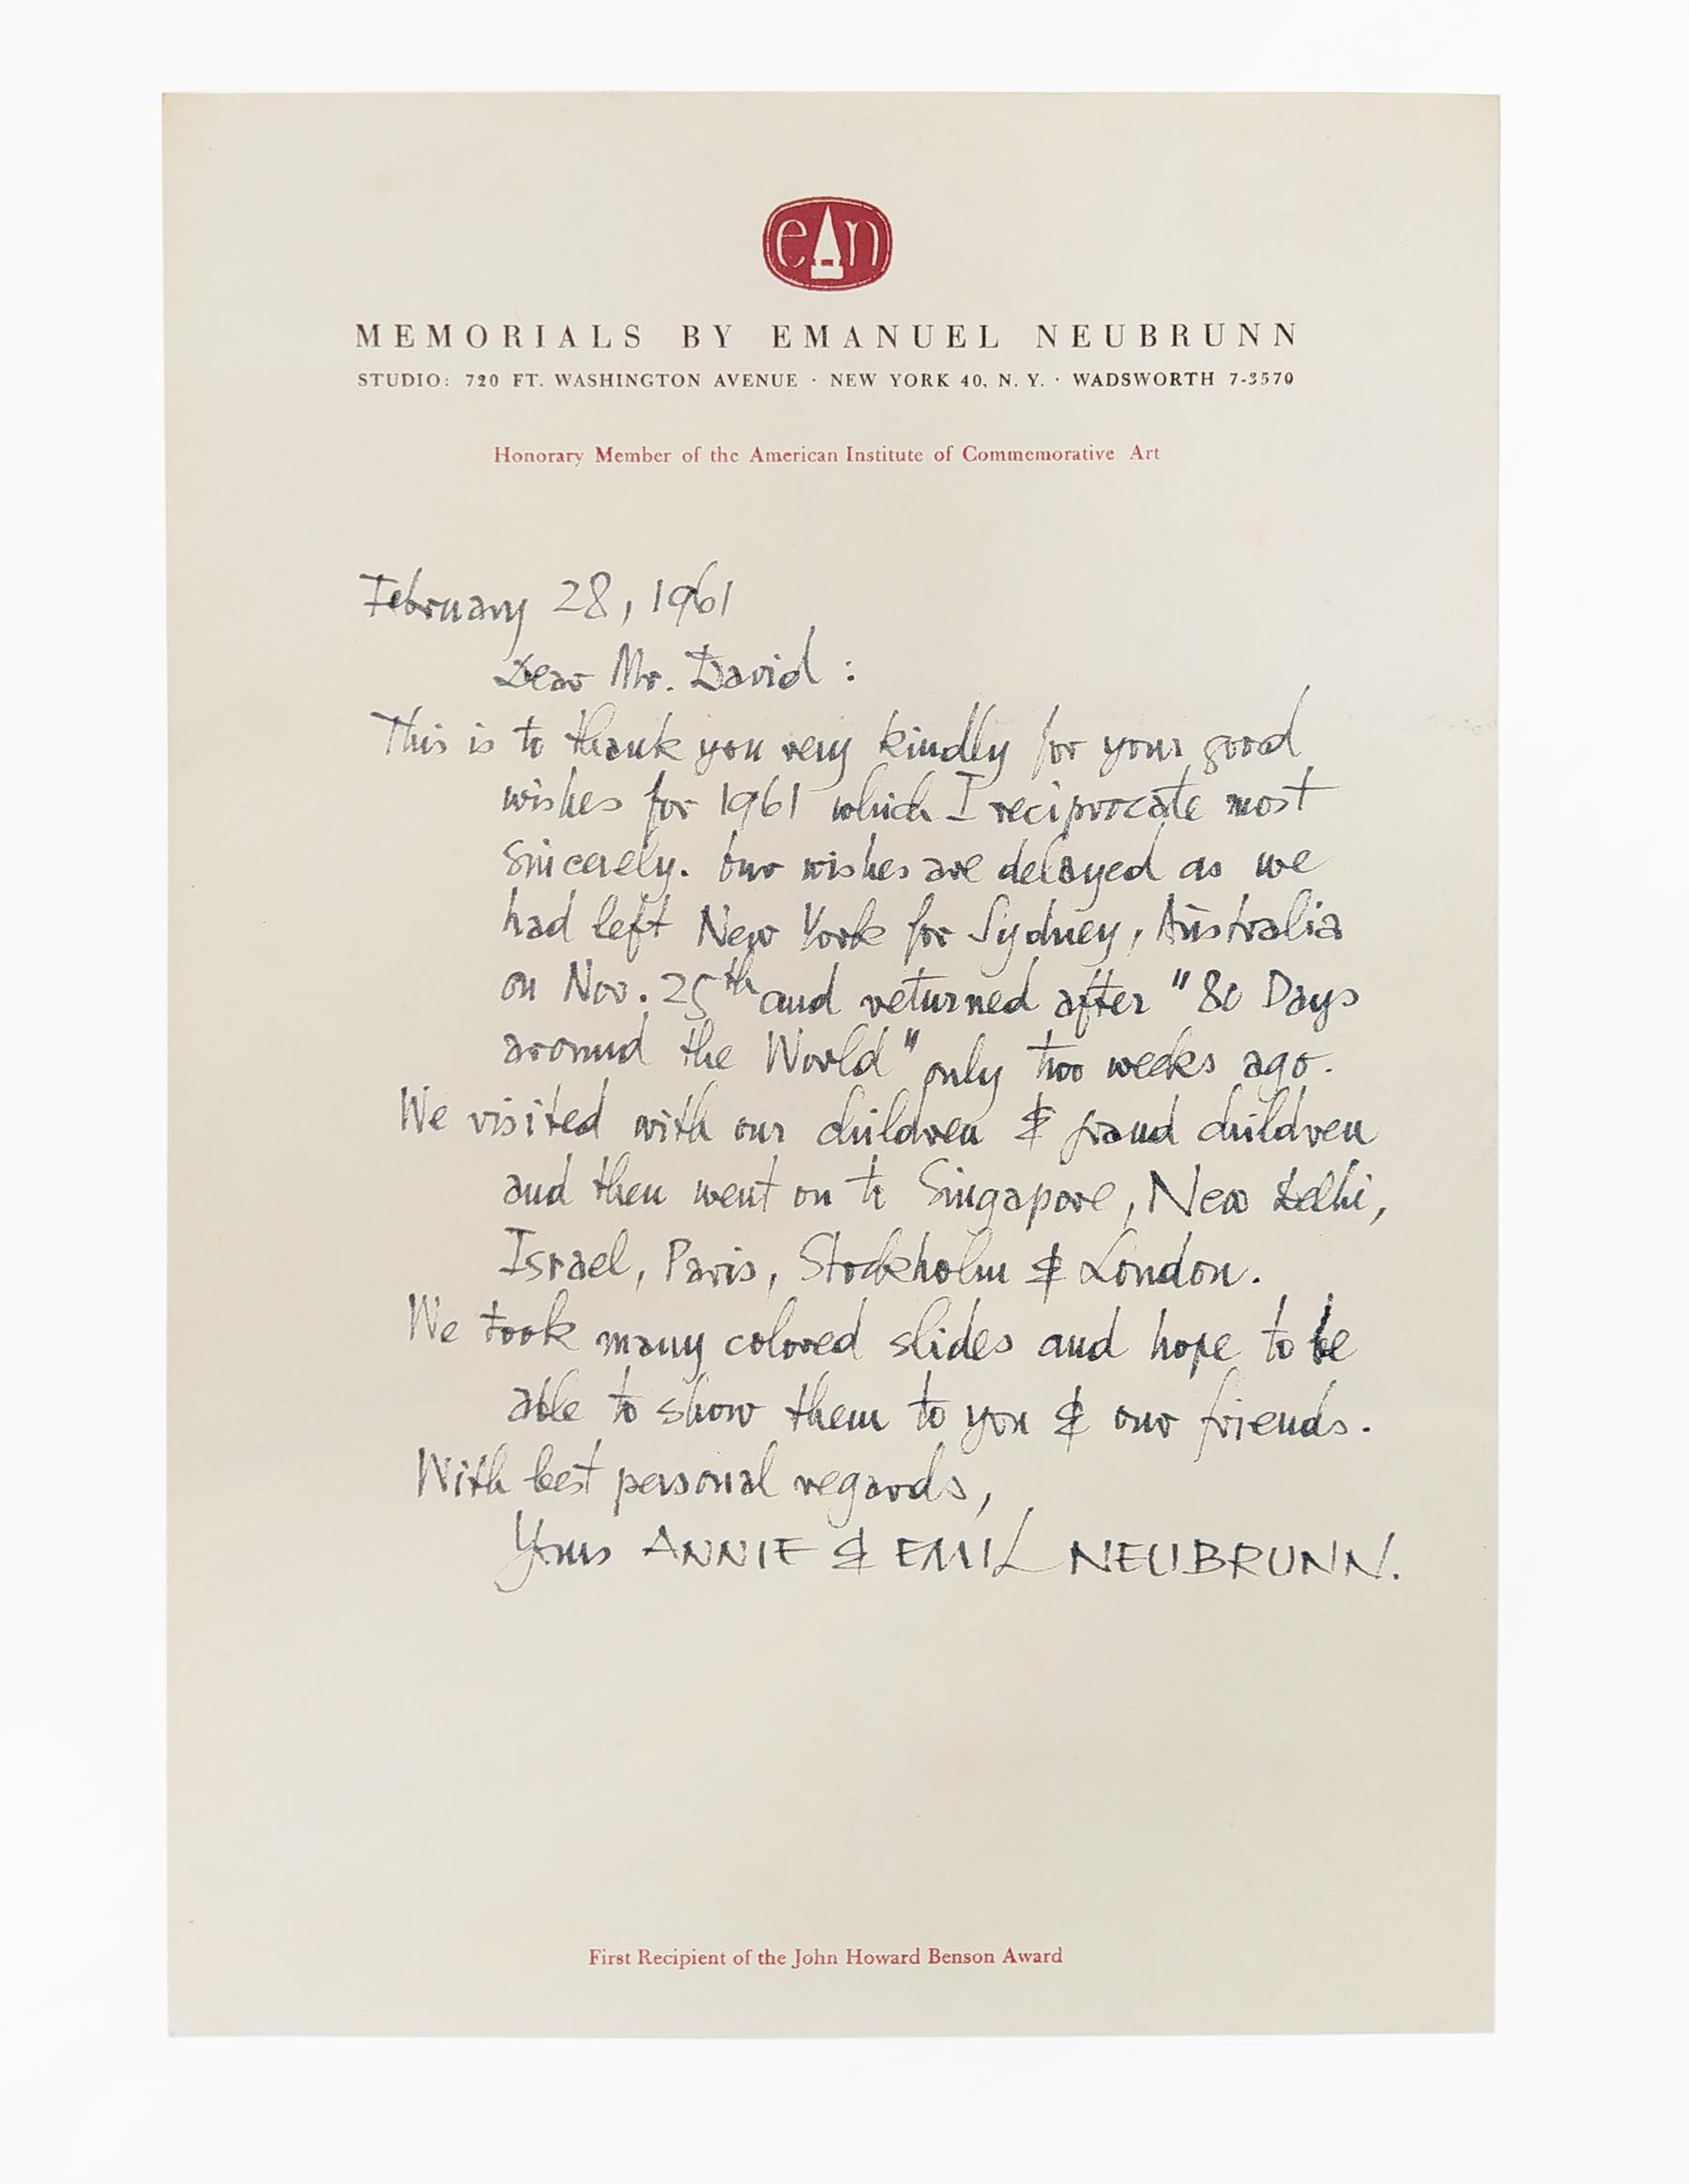 en
MEMORIALS BY EMANUEL NEUBRUNN
STUDIO: 720 FT. WASHINGTON AVENUE · NEW YORK 40, N. Y. · WADSWORTH 7-3570
Honorary Member of the American Institute of Commemorative Art
February 28, 1961
Dear Mr. David:
This is to thank you very kindly for your good
wishes for 1961 which I reciprocate most
sincerely. Our wishes are delayed as we
had left New York for Sydney, Australia
on Nov. 25th and returned after "80 Days
around the World" only two weeks ago.
We visited with our children & grand children
and then went on to Singapore, New Delhi,
Israel, Paris, Stockholm & London.
We took many colored slides and hope to be
able to show them to you & our friends.
With best personal regards,
Yours ANNIE & EMIL NEUBRUNN.
First Recipient of the John Howard Benson Award